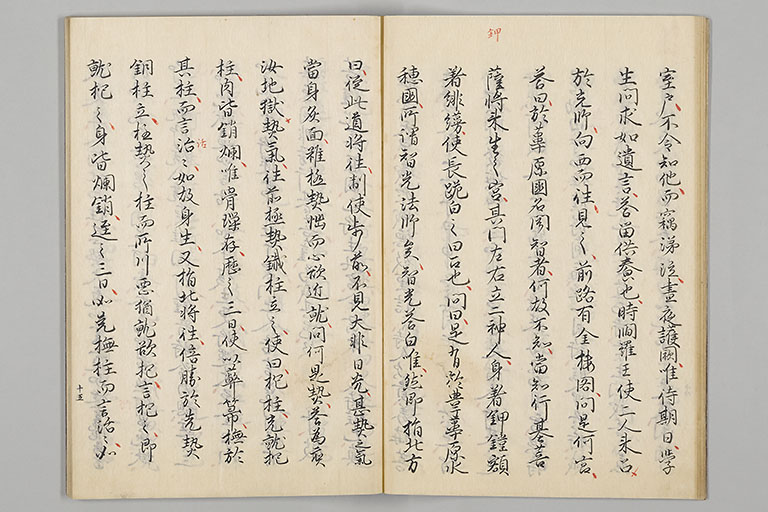 鉀
室戸不令知他而竊涕泣晝夜護闕唯侍期日學
生問求如遺言答留供養也時閻羅王使二人来召
於光師向西而往見之前路有金樓閣問是何宮
答曰於葦原國名聞智者何故不知當知行基菩
薩将来生之宮其門左右立二神人身著鉀鎧額
著緋縵使長跪白之曰召也問曰是有於豊葦原水
穂國所謂智光法師矣智光答白唯然即指北方
曰従此道将往副使歩前不見火非日光甚熱之氣
當身炙面雖極熱惱而心欲近就問何是熱答為煎
汝地獄熱氣往前極熱鐵柱立之使曰抱柱光就抱
柱肉皆銷爛唯骨璅存歴之三日使以弊箒撫於
其柱而言活々如故身生又指北将往倍勝於先熱
活
銅柱立柱熱之柱而所引悪猶就欲抱言抱之即
就抱之身皆爛銷逕之三日如先撫柱而言活々如
十五